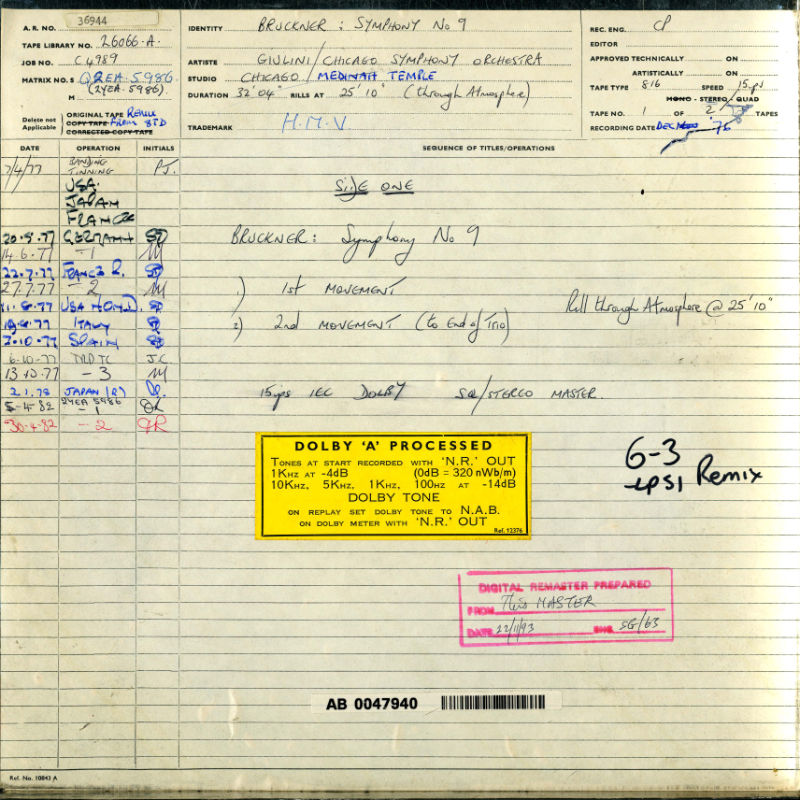 A.R. NO. 36944
TAPE LIBRARY NO. 26066-A.
JOB NO. C4989
MATRIX NO.S Q2EA 5986
(2YEA.5986).
M
Delete not Applicable
ORIGINAL TAPE REMIX
COPY TAPE FROM 8TD
CORRECTED COPY TAPE
IDENTITY BRUCKNER : SYMPHONY No 9
ARTISTE GIULINI/CHICAGO SYMPHONY ORCHESTRA
STUDIO CHICAGO/MEDINAH TEMPLE
DURATION 32'04" RILLS AT 25'10" (through Atmosphere)
TRADEMARK H.M.V.
REC. ENG. CP
EDITOR
APPROVED TECHNICALLY ON
ARTISTICALLY ON
TAPE TYPE 816 SPEED 15ips
MONO - STEREO - QUAD
TAPE NO. 1 OF 2 TAPES
RECORDING DATE 76
DATE OPERATION INITIALS
SEQUENCE OF TITLES/OPERATIONS
7/4/77 BANDING PJ.
TINNING
USA.
JAPAN
FRANCE
20.5.77 GERMANY
14.6.77 -1
22.7.77 FRANCE R.
27.7.77 -2
USA
ITALY
7.10.77 SPAIN
6-10-77 J.C.
13.10.77 -3
2.1.78 JAPAN (R)
5-4-82 2YEA 5986 -1
30.4.82 -2
SIDE ONE
BRUCKNER: Symphony No 9
1) 1st MOVEMENT
Rill through Atmosphere @ 25'10"
2) 2nd MOVEMENT (to End of Trio)
15ips IEC DOLBY SQ/STEREO MASTER.
DOLBY 'A' PROCESSED
TONES AT START RECORDED WITH 'N.R.' OUT
1KHZ AT -4dB (0dB = 320 nWb/m)
10KHZ, 5KHZ, 1KHZ, 100HZ AT -14dB
DOLBY TONE
ON REPLAY SET DOLBY TONE TO N.A.B.
ON DOLBY METER WITH 'N.R.' OUT
Ref. 12376
6-3
Remix
DIGITAL REMASTER PREPARED
FROM This MASTER
DATE 22/11/93 ENG. SG/63
AB 0047940
Ref. No. 10843 A